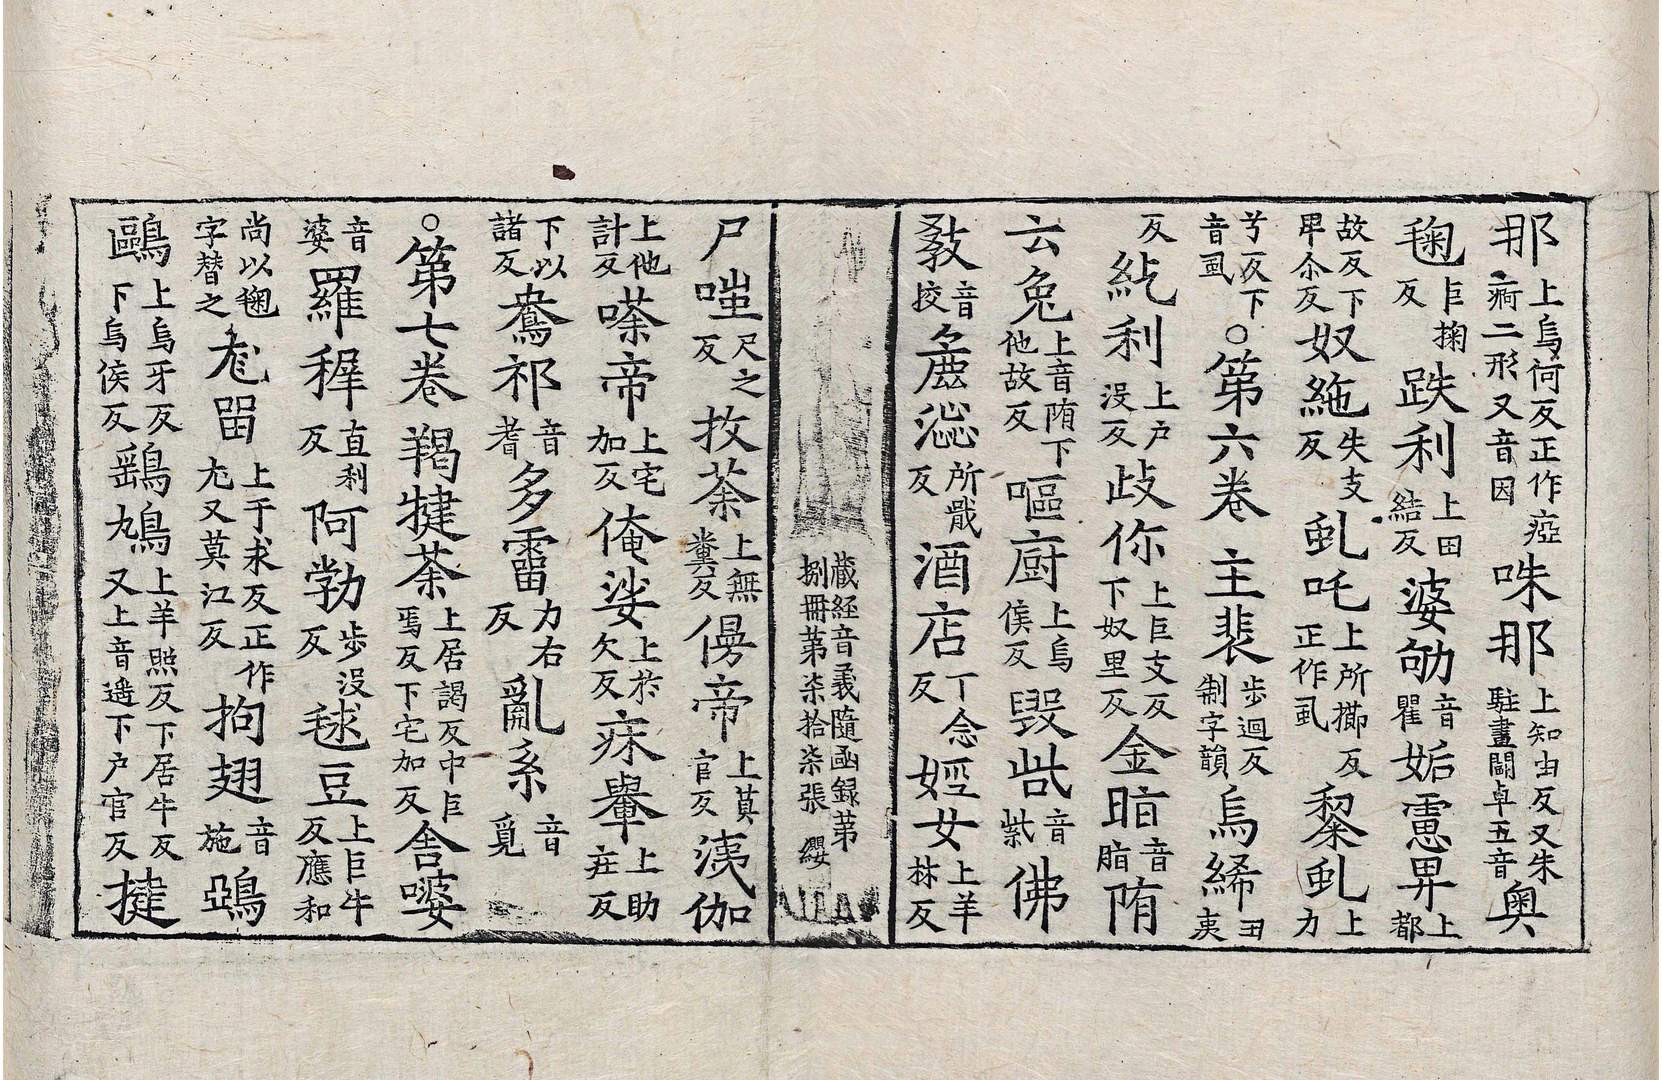 那上烏何反正作瘂𤶀二形又音因咮那上知由反又朱駐晝鬪卓五音奧
毱巨掬反跌利上田結反婆劬音瞿姤㥶畀上都
故反下卑尒反奴絁失支反虬吒上所擳反正作虱黎虬上力
兮反下音虱○第六卷主裴步迴反制字韻烏絺丑夷
反紇利上户没反歧你上巨支反下奴里反金𣅀音脂陏
云兔上音陏下他故反嘔厨上烏侯反毀呰音紫佛
敎音挍麁澁所戢反酒店丁念反婬女上羊林反
藏經音義隨函録第捌冊第柒拾柒張 纓
尸嗤尺之反抆荼上無糞反㑻帝上莫官反羠伽
上他計反嗏帝上宅加反俺娑上於欠反庥轝上助疰反
下以諸反鴦祁音耆多霤力右反亂系音覓
○第七卷羯㨴荼上居謁反中巨焉反下宅加反舍嘙
音婆羅稺直利反阿㔜步没反毬豆上巨牛反應和
尚以毱字替之尨留上于求反正作尤又莫江反拘翅音施鵶
鷗上烏牙反下烏侯反鷂鳩上羊照反下居牛反又上音遥下户官反揵